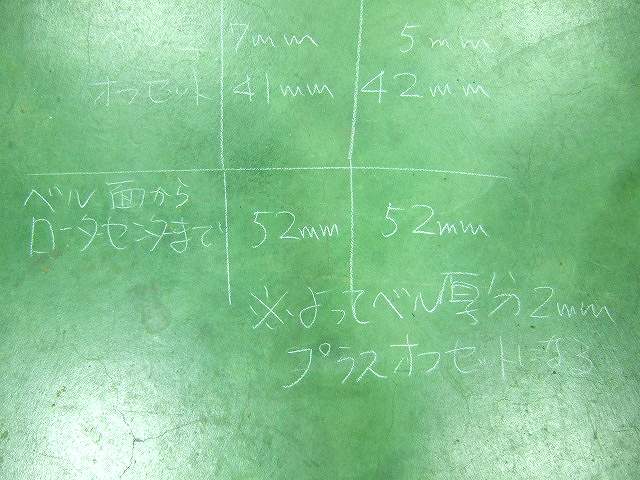 7mm 5mm
オフセット 41mm 42mm
ベル面から
ローターセンタまで 52mm 52mm
※よってベル厚分2mm
プラスオフセットになる